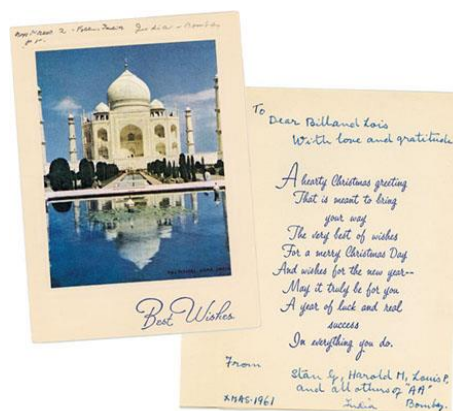 India - Bombay
Best Wishes
To
Dear Bill and Lois
With love and gratitude
A hearty Christmas greeting
That is meant to bring
your way
The very best of wishes
For a merry Christmas Day
And wishes for the new year--
May it truly be for you
A year of luck and real
success
In everything you do.
From
Stan G, Harold M, Louis P.
and all others of "AA"
XMAS-1961 India Bombay.